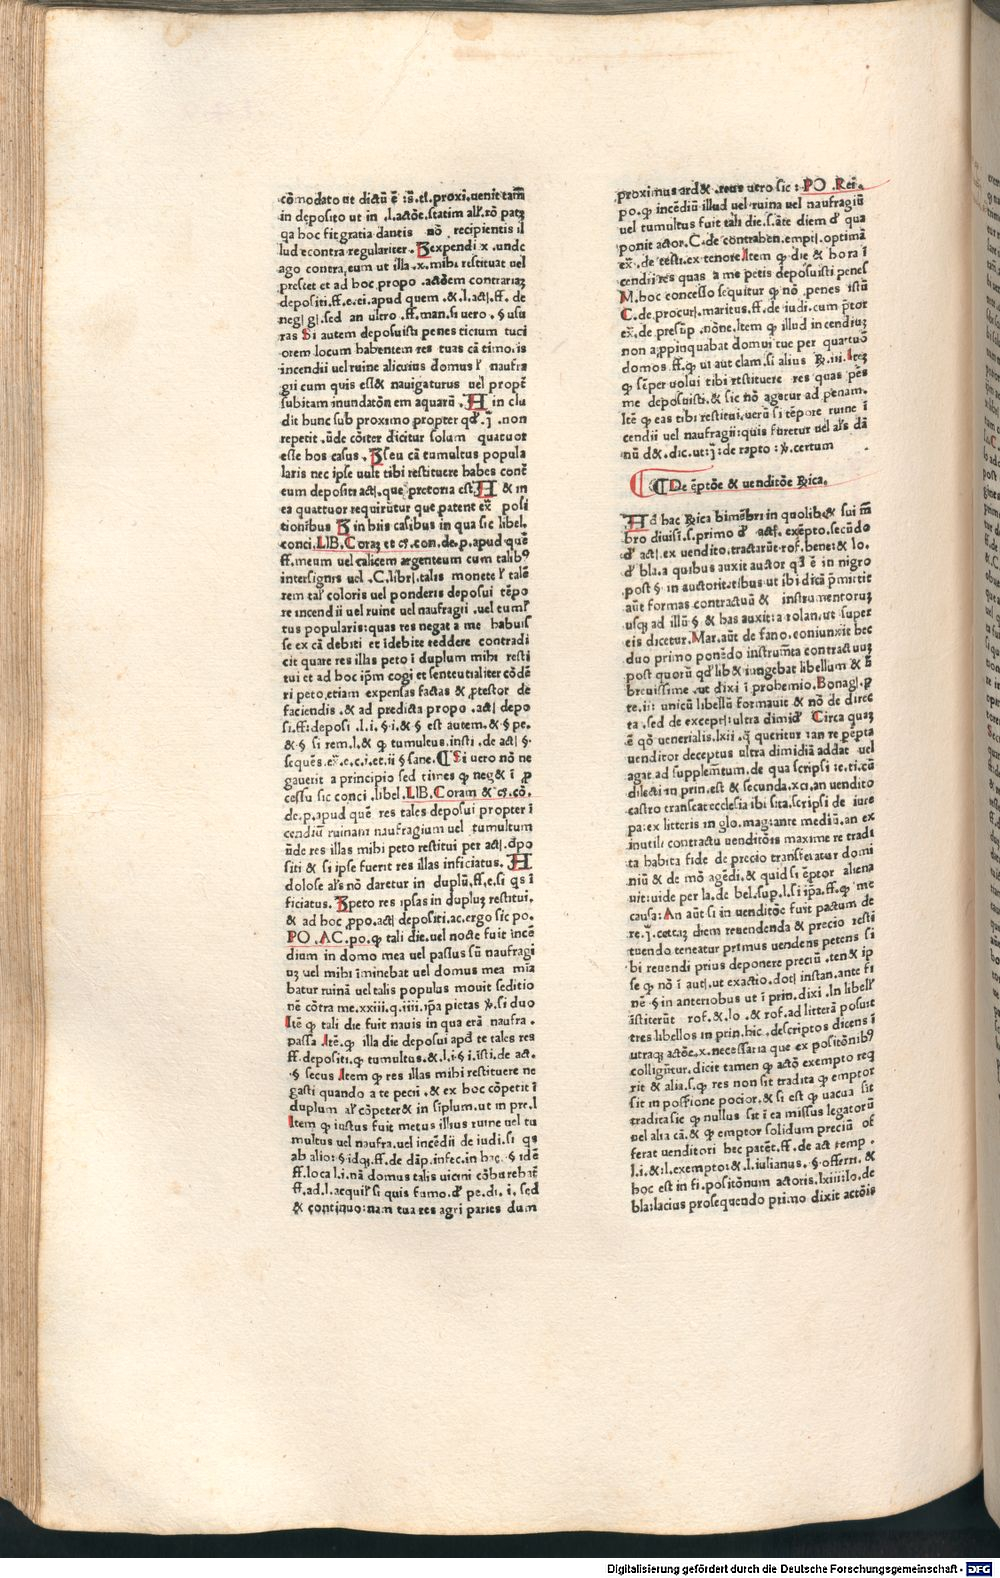 cōmodato ut dictū ē :s.tl.proxi.uenit tam̄
in deposito ut in .l.actōe.statim
qa hoc fit gratia dantis nō recipientis il
lud econtra regulariter. expendi x .unde
ago contra eum ut illa .x. mihi restituat uel
prestet et ad hoc propo .actōem contrariaꝫ
depositi.ff.e.ei.apud quem .&.l.act.ff. de
sed an ultro .ff.man.si uero . § usu
ras Si autem deposuisti penes ticium tuci
orem locum habentem res tuas cā timoris
incendii uel ruine alicuius domus naufra
gii cum quis esset nauigaturus uel propē
subitam inundatōnem aquarū . in clu
dit hunc sub proximo propter non
repetit .ūde cōiter dicitur solum quatuor
esse hos casus . seu cā tumultus popula
laris nec ipse uult tibi restituere habes contē
eum depositi que pretoria est & in
ea quattuor requirūtur que patent posi
tionibus in hiis casibus in qua sic libel.
conci.LIB.Coraꝫ et con.de.p.apud quē
ff.meum uel calicem argenteum cum talibꝰ
intersigniis uel .C.libr.talis monete talē
rem tal coloris uel ponderis deposui tēpo
re incendii uel ruine uel naufragii .uel
tus popularis:quas res negat a me habuis
se ex cā debiti et idebite reddere contradi
cit quare res illas peto ī duplum mihi resti
tui et ad hoc ip̄m cogi et sententialiter cōdē
ri peto.etiam expensas factas & ꝓtestor de
faciendis .& ad predicta propo depo
si.ff:deposi .l.i. §.i.& § est autem.& § pe.
& § si rem.l.& ꝙ tumultus.insti .de
seques. e.c.i.et.ii § sane. Si uero nō ne
gauerit a principio sed times ꝙ neget ī ꝓ
cessu sic conci .libel.LIB.Coram cō.
de.p.apud quē res tales deposui propter ī
cendiū ruinam naufragium uel tumultum
ūde res illas mihi peto restitui per
siti & si ipse fuerit res illas inficiatus.
dolose nō daretur in duplū.ff.e.si qs ī
ficiatus. peto res ipsas in dupluꝫ restitui.
& ad hoc ꝓpo. depositi.ac.ergo sic po.
PO .AC.po.ꝙ tali die.uel nocte fuit incē
dium in domo mea uel passus sū naufragi
uꝫ uel mihi īminebat uel domus mea mia
batur ruinā uel talis populus mouit seditio
nē cōtra me.xxiii.q.iiii.ip̄a pietas si duo
Itē ꝙ tali die fuit nauis in qua erā naufra .
passa .Itē.ꝙ illa die deposui te tales res
ff.depositi.ꝙ tumultus.&.l.i.§ i.īsti.de ac.
.§ secus Item ꝙ res illas mihi restituere ne
gasti quando a te pecii .& ex hoc cōpetit ī
duplum cōpeteret in siplum.ut in pre.l
Item ꝙ iustus fuit metus illius ruine uel tu
multus uel naufra.uel incēdii de iudi.si qs
ab alio: ff.de dāp.infec.in hac § idē
ff.loca.l.i.nā domus talis uicini cōburebat̄
ff.ad.l.acquil si quis fumo. pe.di. i. sed
& continuo:nam tua res agri paries dum
proximus ardet .reus uero sic : PO .Rei.
po.ꝙ incēdiū illud uel ruina uel naufragiū
uel tumultus fuit tali die.s.āte diem qua
ponit actor.C.de contrahen.empt.optimā
de testi.ex tenore Item ꝙ die & hora ī
cendii res quas a me petis deposuisti penes
M.hoc concesso sequitur ꝙ nō penes istū
C.de procur.maritus.ff.de iudi.cum p̄tor
de presūp .nōne.Item ꝙ illud incendiuꝫ
non appinquabat domui tue per quatuō
domos ff.ꝙ ui aut clam.si alius .iii.Iteꝫ
ꝙ sēper uolui tibi restituere res quas pēs
me deposuisti.& sic nō agetur ad penam.
Itē ꝙ eas tibi restitui.uerū si tēpore ruine ī
cendii uel naufragii:quis furetur uel dā
nū det.dic.ut: :de rapto : .certum
De ēptōe & uenditōe Rica.
Ad hac Rica bimēbri in quolibet sui
bro diuisi.s.primo exēpto.secūdo
ex uendito.tractarūt rof.bene:& lo.
bla.a quibus auxit auctor ē in nigro
post § in auctoritatibus ut ibi dicā p̄mittit
aūt formas contractuū & instrumentoruꝫ
usqꝫ ad illū § & has auxit:a rolan.ut super
eis dicetur.Mar.aūt de fano.coniunxit hec
duo primo ponēdo instrum̄ta contractuuꝫ
post quorū lib& iungebat libellum &
breuissime .ut dixi ī prohemio.Bonag.
te.i: unicū libellū formauit & nō de direc
ta .sed de except:ultra dimid Circa quaꝫ
ē qō uenerialis.lxii .q̄ queritur an re pēpta
uenditor deceptus ultra dimidiā addat uel
agat ad supplem̄tum.de qua scripsi :e.ti.cū
dilecti in prin.est & secunda.xci.an uendito
castro transeat ecclesia ibi sita.scripsi de iure
pa:ex litteris in glo.mag:ante mediū.an ex
inutili contractu uenditōis maxime re tradi
ta habita fide de precio transferatur domi
niū & de mō agēdi.& quid si ēptor aliena
uit:uide per la.de bel.sup.l.si ip̄a.ff.ꝙ me
causa: An aūt si in uenditōe fuit pactum de
re. certaꝫ diem reuendenda & precio resti
tuendo teneatur primus uendens petens si
bi reuendi prius deponere preciū .tenet ip
se ꝙ nō ī aut.ut exactio.dot instan.ante fi
nē § in anterioribus ut ī prin.dixi .In libell
āstiterūt rof.& lo .& rof.ad litterā posuit
tres libellos in prin.hic.descriptos dicens ī
utraqꝫ actōe.x.necessaria que ex positōnibꝰ
colligūtur.dicit tamen ꝙ actō exempto req
rit & alia.s.ꝙ res non sit tradita ꝙ emptor
sit in possione pocior.& si est ꝙ uacua sit
tradita sic ꝙ nullus sit ī ea missus legatorū
uel alia cā.& ꝙ emptor solidum preciū of
ferat uenditori hec patēt.ff.de act emp .
l.i.&:l.exempto:&.l.iulianus.§.offerri. &
hoc est in fi.positōnum actoris.lxiiii.lo.de
bla:lacius prosequendo primo dixit actōis
Digitalisierung gefördert durch die Deutsche Forschungsgemeinschaft - DFG